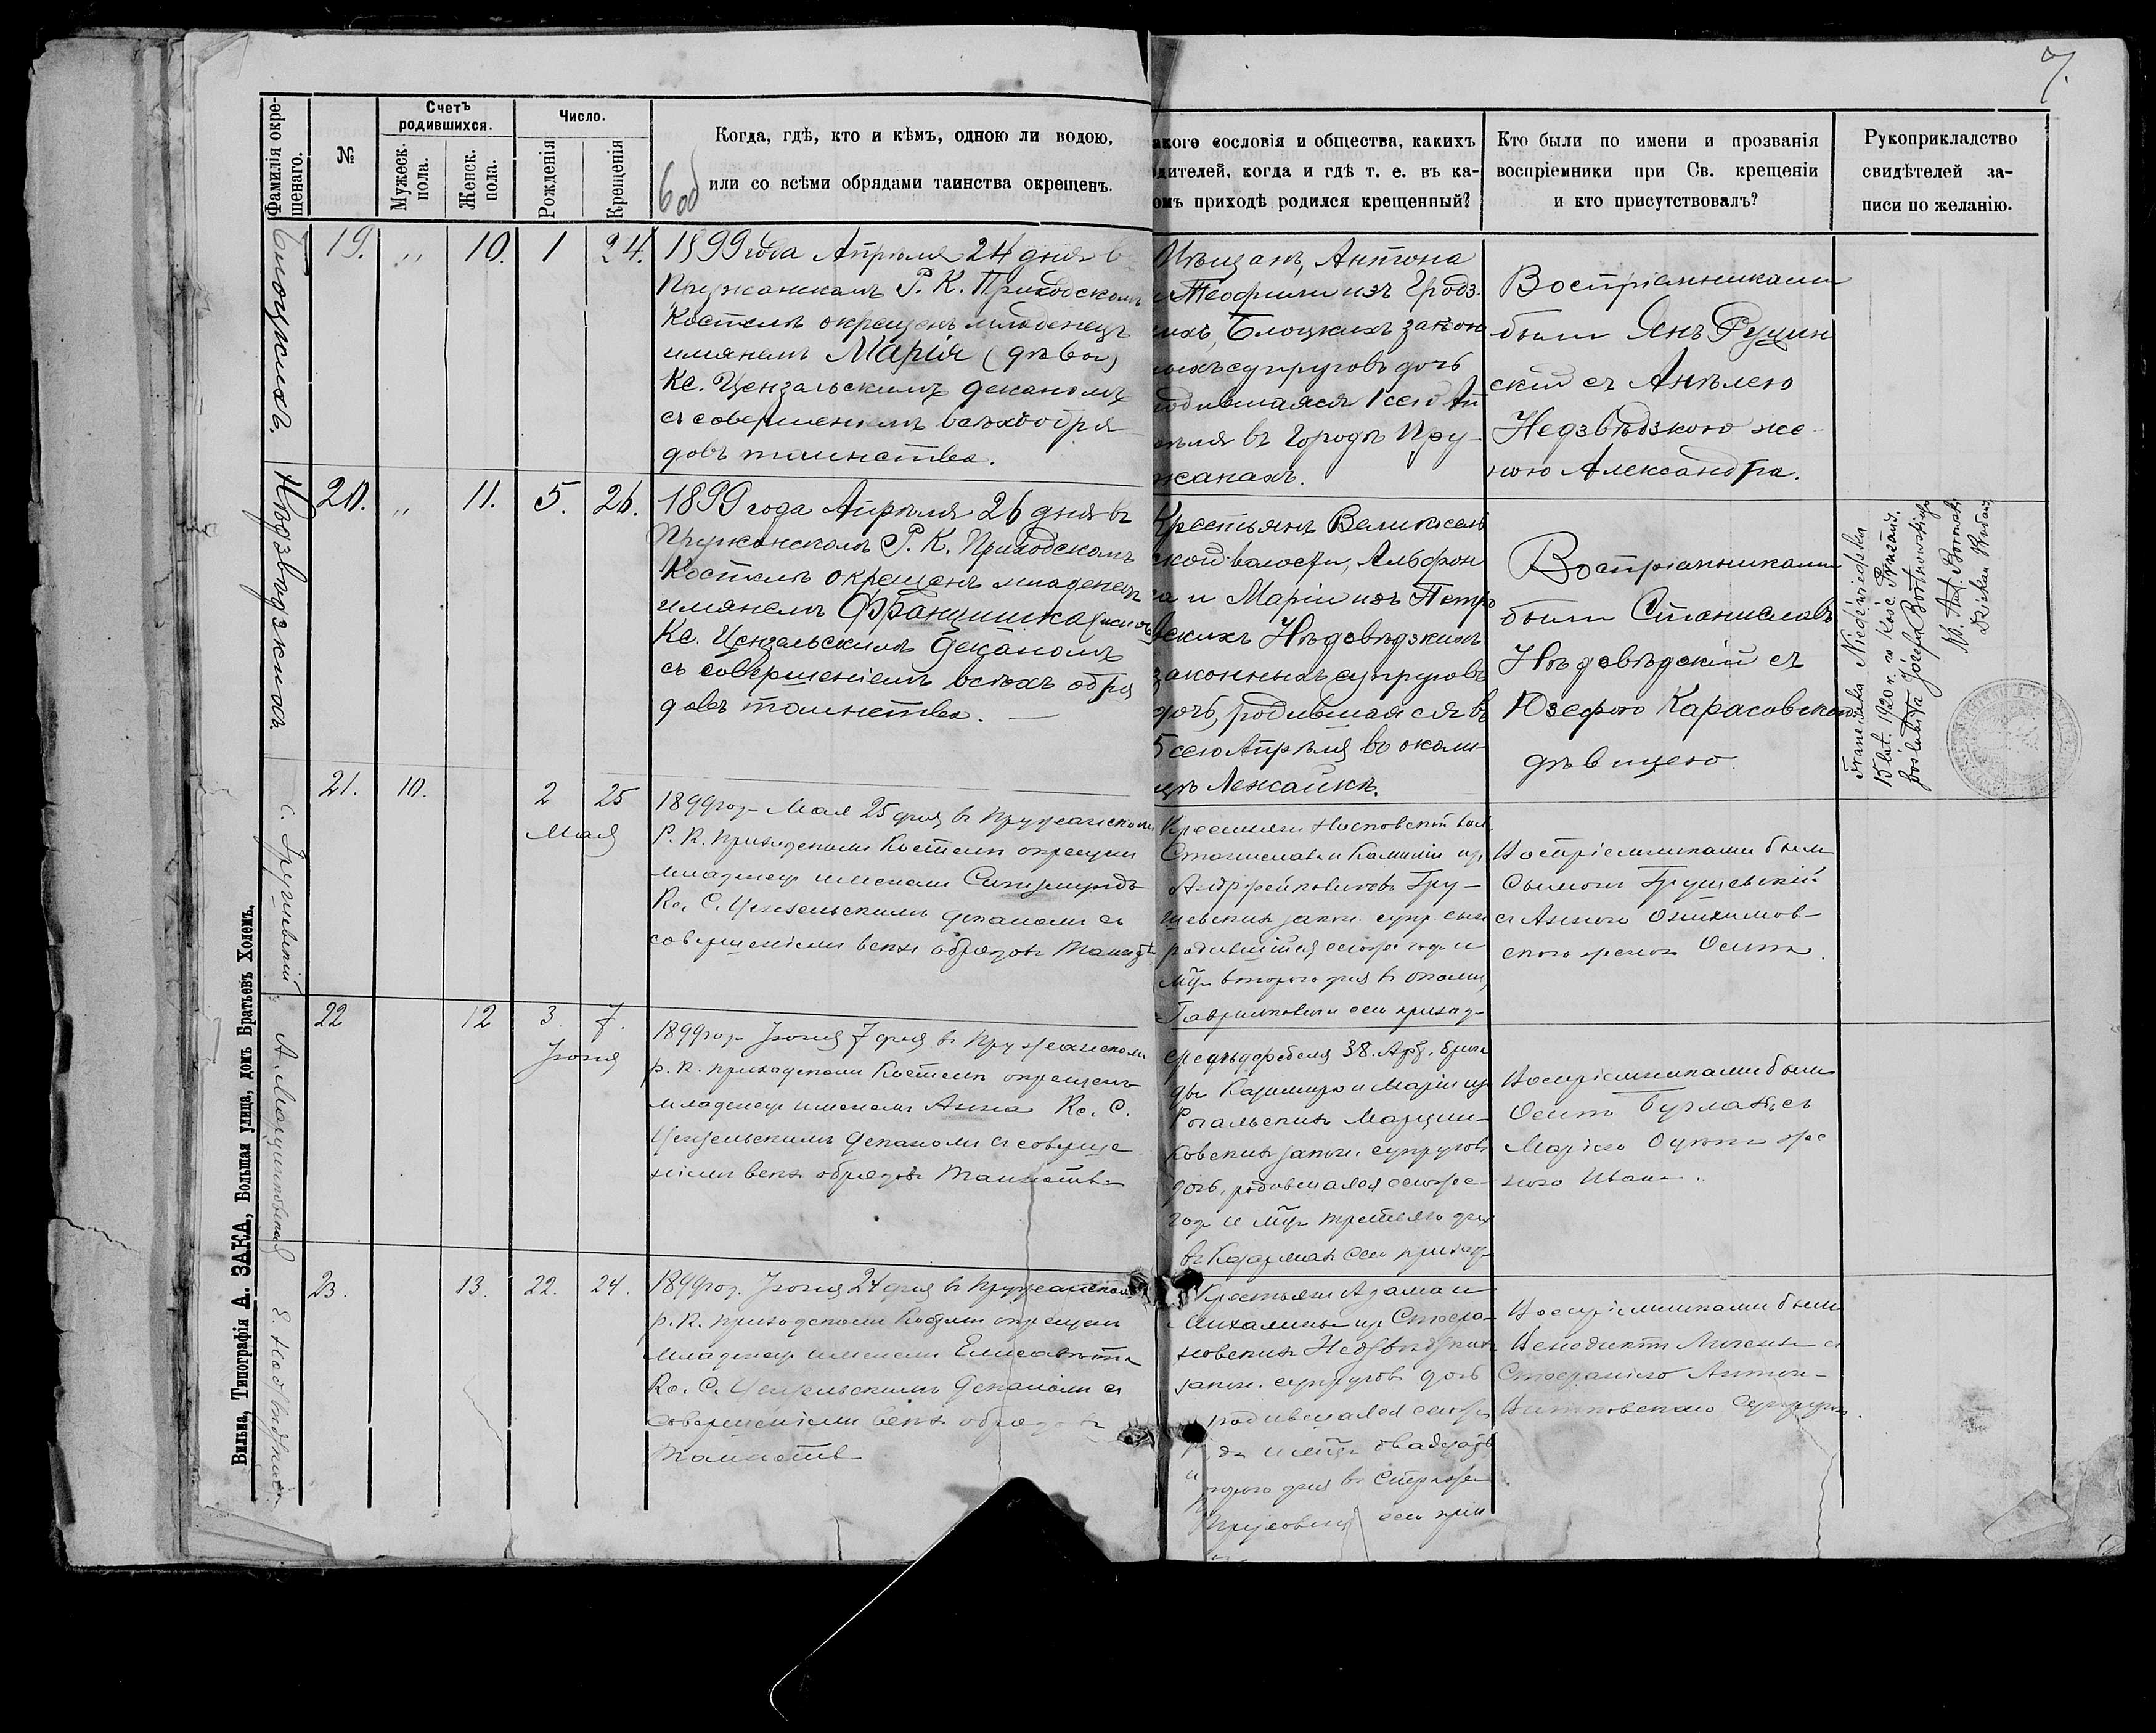 7.
Фамилія окре-
шенаго.
№
Счетъ
родившихся.
Мужеск.
пола.
Женск.
пола.
Число.
Рожденія
Крещенія
Когда, гдѣ, кто и кѣмъ, одною ли водою,
или со всѣми обрядами таинства окрещенъ.
акого сословія и общества, какихъ
дителей, когда и гдѣ т. е. въ ка-
омъ приходѣ родился крещенный?
Кто были по имени и прозванія
воспріемники при Св. крещеніи
и кто присутствовалъ?
Рукоприкладство
свидѣтелей за-
писи по желанію.
Блоцкихъ.
19. „ 10. 1 24.
1899 года Апрѣля 24 дня в
Пружанскомъ Р. К. Приходскомъ
Костелѣ окрещенъ младенецъ
имянемъ Марія (дѣвоч)
Кс. Цензальскимъ деканомъ
съ совершеніемъ всѣхъ обря
довъ таинства.
Мѣщанъ, Антона
и Теофили изъ Гродз.
ихъ, Блоцкихъ закон
ыхъ супруговъ дочь
родившаяся 1 сего Ап
рѣля въ Городѣ Пру-
жанахъ.
Воспріемниками
были Янъ Рущин
скій съ Анѣлею
Недзвѣдзкою же-
ною Александра.
Нѣдзвѣдзкихъ.
20. „ 11. 5. 26.
1899 года Апрѣля 26 дня въ
Пружанскомъ Р. К. Приходскомъ
Костелѣ окрещенъ младенецъ
имянемъ Францишка
Кс. Цензальскимъ Деканомъ
съ совершеніемъ всѣхъ обря
довъ таинства. —
Крестьянъ Великсель
ской волости, Альфон
са и Маріи изъ Петро
вскихъ Нѣдзвѣдзкихъ
законныхъ супруговъ
дочь, родившаяся въ
5 сего Апрѣля въ околи
цѣ Лежайкѣ.
Воспріемниками
были Станиславъ
Нѣдзвѣдзкій съ
Юзефою Карасовскою
дѣвицею.
Franciszka Niedźwiedzka
15 lut. 1920 r. w Kośc. Prużańsk.
poślubiła Józefa Bortnowskiego
Ks. Ant. Borowski
Dziekan Prużań.
С. Грушевскій
21. 10. 2 25
Мая
1899 год. Мая 25 дня въ Пружанскомъ
Р. К. приходскомъ Костелѣ окрещенъ
младенецъ именемъ Сигизмундъ
Кс. С. Цензальскимъ деканомъ съ
совершеніемъ всѣхъ обрядовъ Таинств
Крестьянъ Носковской вол.
Станислава и Камиліи изъ
Андржейковичовъ Гру-
шевскихъ закон. супр. сынъ
родившійся сегоже года и
мца второго дня въ околиц.
Гавриловичи сего приход.
Воспріемниками были
Сымонъ Грушевскій
съ Анною
женою Осипа.
А. Марцинковская
22 12 3. 7.
Іюня
1899 год. Іюня 7 дня въ Пружанскомъ
р. к. приходскомъ Костелѣ окрещенъ
младенецъ именемъ Анна Кс. С.
Цензельскимъ деканомъ съ соверше
ніемъ всѣхъ обрядовъ Таинств
фельдфебеля 38. Арт. брига
ды Казимира и Маріи изъ
Рогальскихъ Марцин-
ковскихъ закон. супруговъ
дочь, родившаяся сегоже
года и мца третьяго дня
въ Казармахъ сего приход.
Воспріемниками были
Осипъ съ
Маріею же
ною Ивана.
Е. Недзвѣдзкая
23. 13. 22. 24.
1899 год. Іюня 24 дня въ Пружанскомъ
р. К. приходскомъ Костелѣ окрещенъ
младенецъ именемъ Елисавета
Кс. С. Цензельскимъ деканомъ съ
совершеніемъ всѣхъ обрядовъ
Таинств
Крестьянъ Адама и
Михалины изъ
Недзвѣдзкихъ
закон. супруговъ дочь
родившаяся сегоже
да и мца двадцать
второго дня въ
сего при
Воспріемниками были
Венедиктъ съ
Стефаніею Антон-
Витковскаго супругою.
Вильна, Типографія А. ЗАКА, Большая улица, домъ Братьевъ Холемъ.